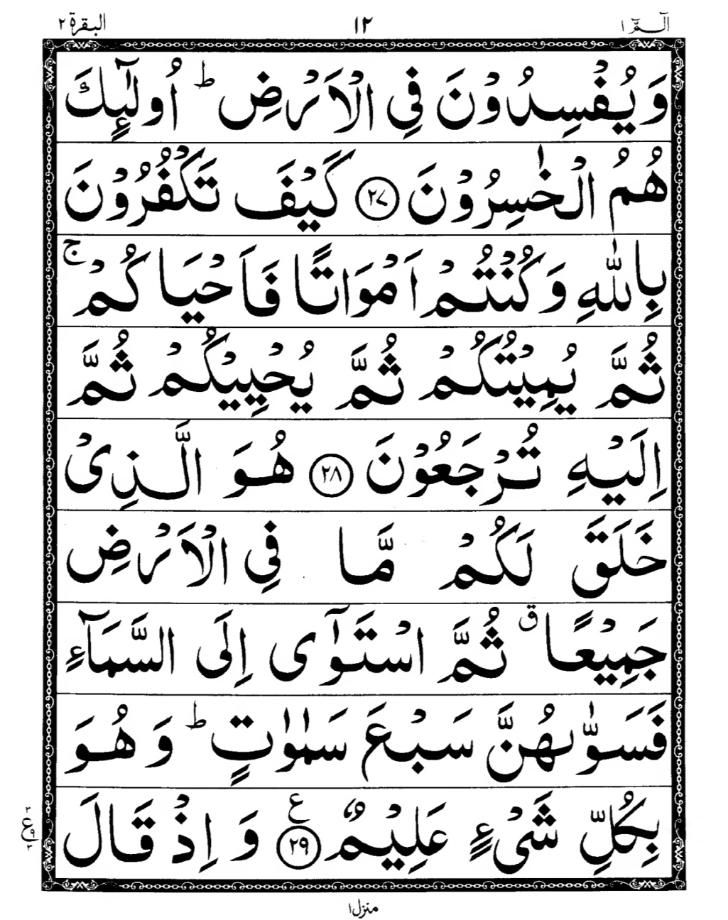 الٓمّٓ ١ ١٢ البقرة ٢
وَيُفْسِدُوْنَ فِي الْاَرْضِ ؕ اُولٰٓئِكَ
هُمُ الْخٰسِرُوْنَ ﴿۲۷﴾ كَيْفَ تَكْفُرُوْنَ
بِاللّٰهِ وَكُنْتُمْ اَمْوَاتًا فَاَحْيَاكُمْ ۚ
ثُمَّ يُمِيْتُكُمْ ثُمَّ يُحْيِيْكُمْ ثُمَّ
اِلَيْهِ تُرْجَعُوْنَ ﴿۲۸﴾ هُوَ الَّذِیْ
خَلَقَ لَكُمْ مَّا فِي الْاَرْضِ
جَمِيْعًا ۗ ثُمَّ اسْتَوٰٓى اِلَى السَّمَآءِ
فَسَوّٰىهُنَّ سَبْعَ سَمٰوٰتٍ ؕ وَ هُوَ
بِكُلِّ شَیْءٍ عَلِيْمٌ ﴿۲۹﴾ ع وَ اِذْ قَالَ
٣ ع ٩ ٣
منزل ١